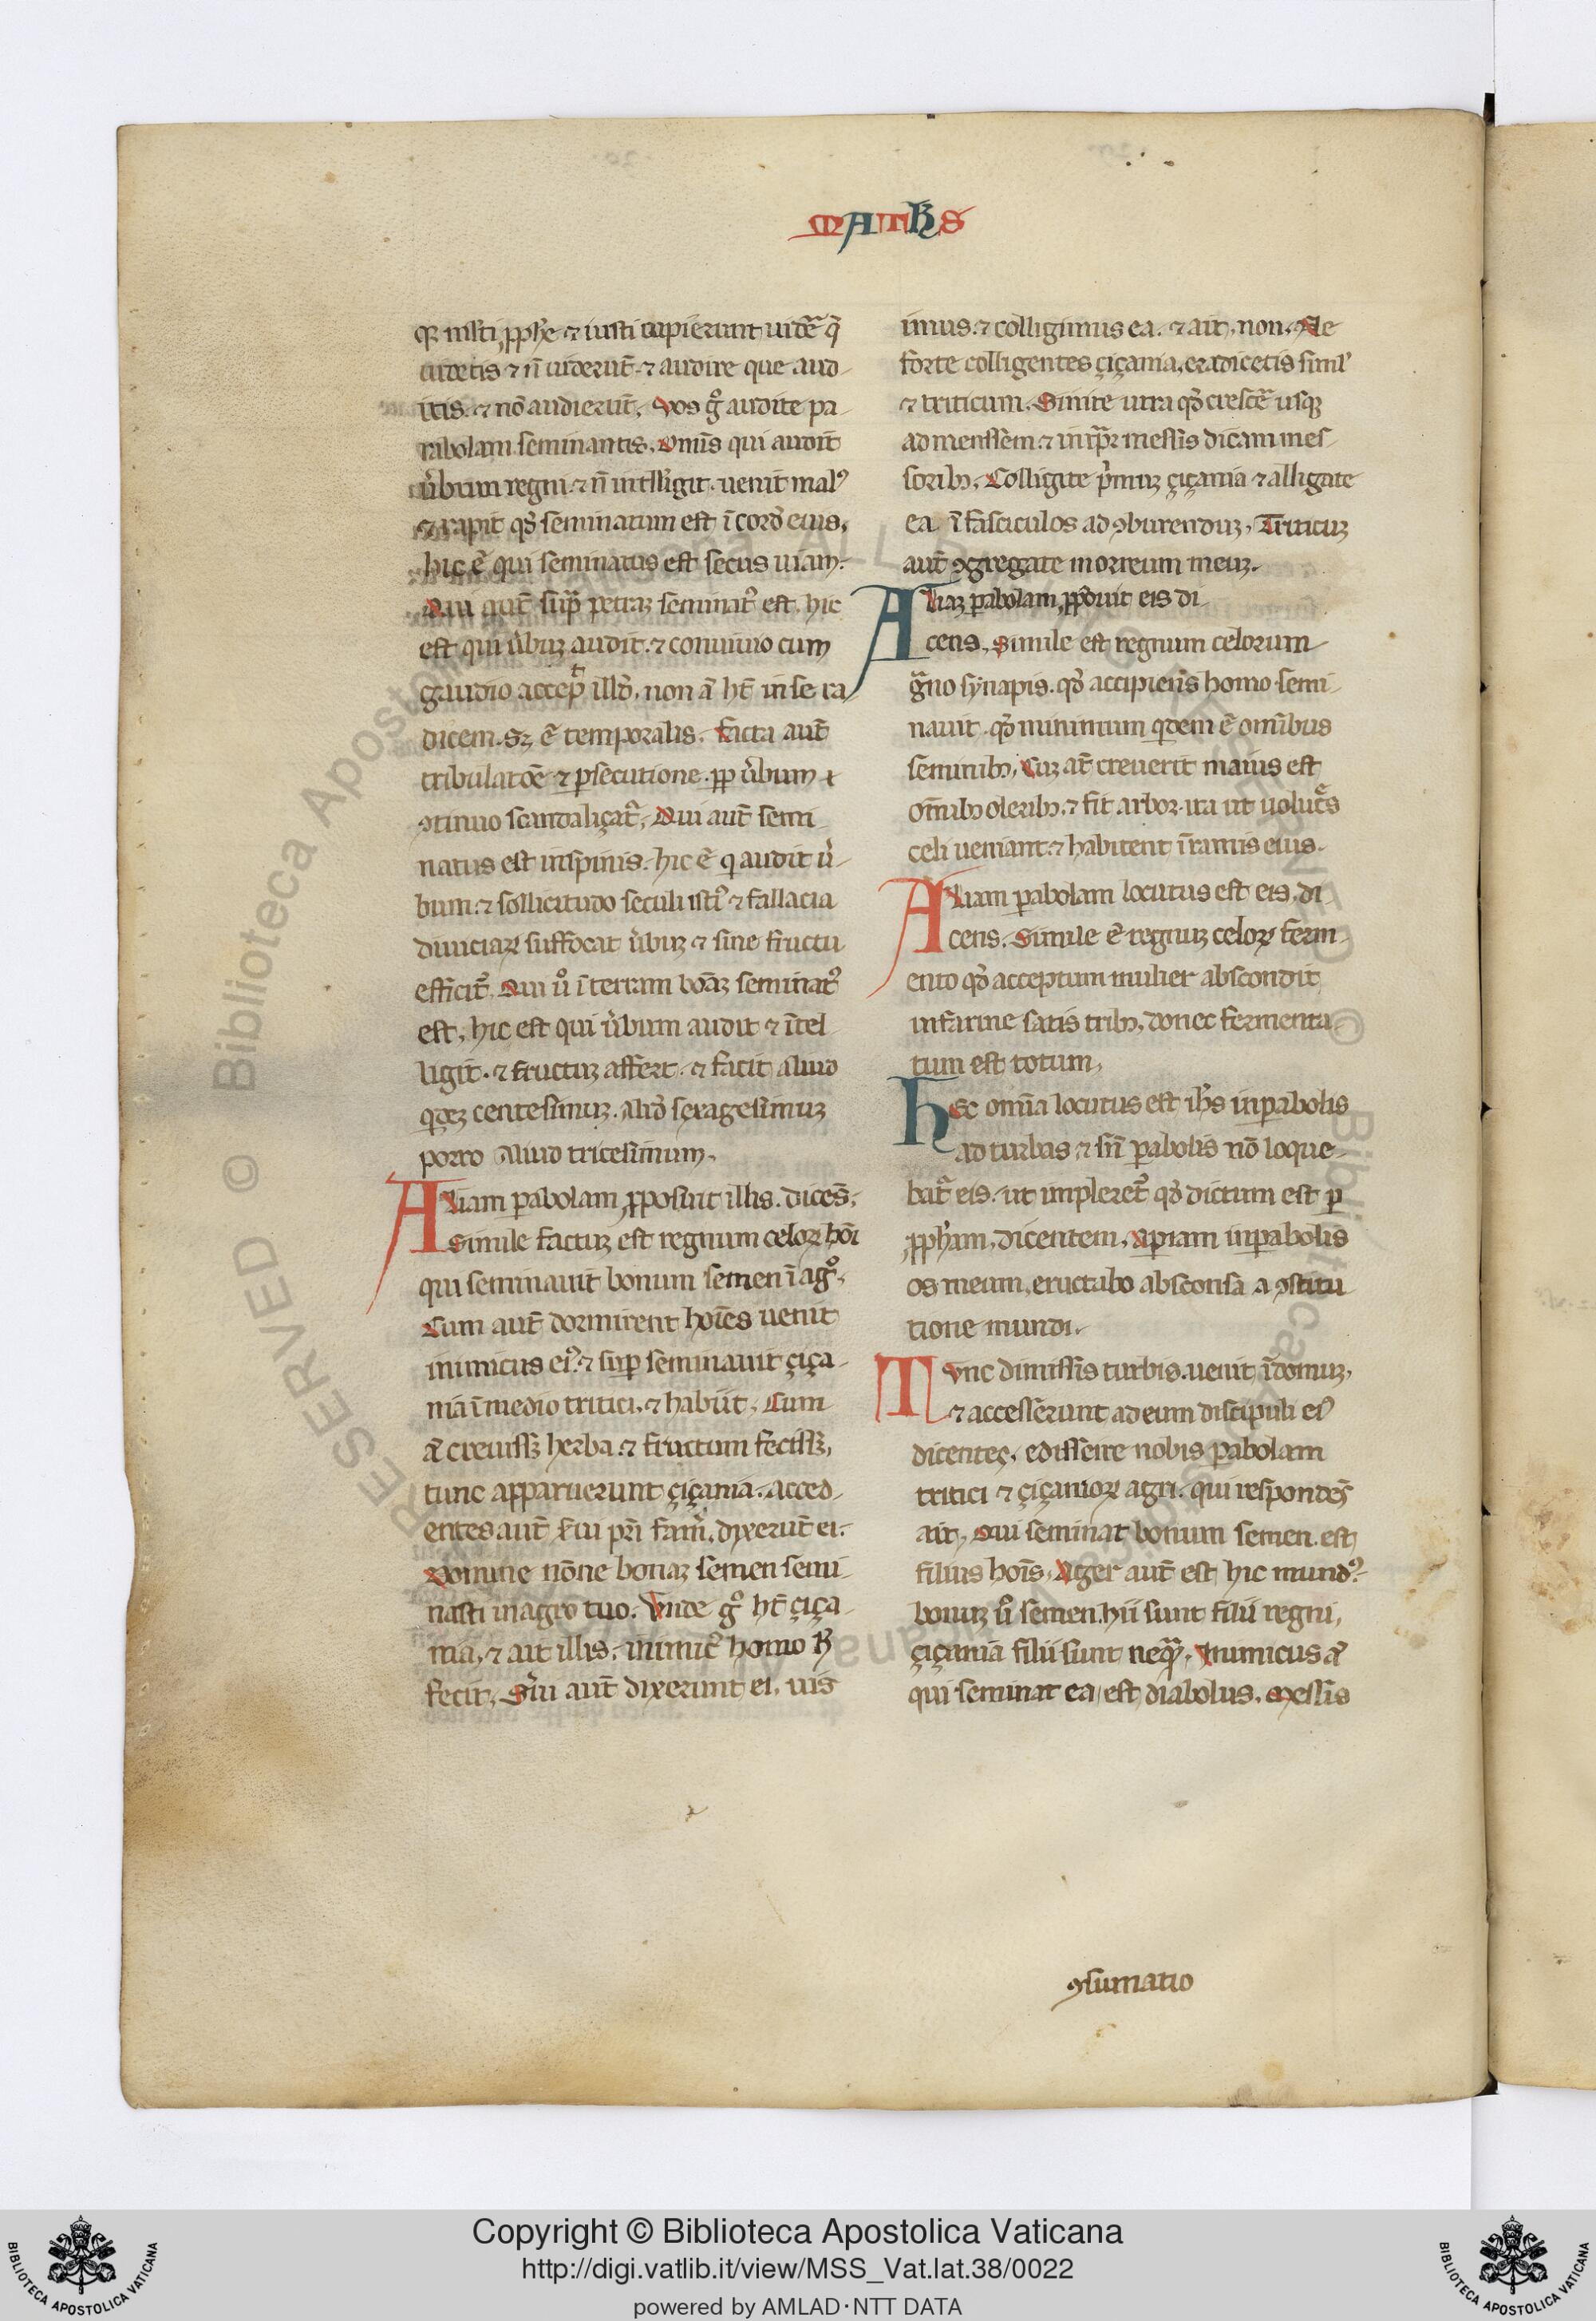 MATHS
qꝫ iusti ꝓphe ⁊ iusti cupierunt uide᷑ q̄
uidetis ⁊ n̄ uiderūt. ⁊ audire que aud-
itis. ⁊ nō audierūt. Vos gͦ audite pa-
rabolam seminantis. Omīs qui audit
ủbum regni ⁊ n̄ intelligit. uenit malꝰ
⁊ rapit qđ seminatum est ī corđ eius.
hic ē qui seminatus est secus uiam.
Qui aut̄ supra petraꝫ seminatꝰ est. hic
est qui ủbuꝫ audit. ⁊ conuiuio cum
gaudio accep̄t illđ. non ā ht̄ in se ra
dicem. sꝫ ē temporalis. Facta aut̄
tribulatōe ⁊ ꝑsecutione. ꝓp ủbum
ꝯtinuo scandaliçat᷑. Qui aut̄ semi-
natus est in spinis. hic ē q audit ủ-
bum. ⁊ sollicitudo seculi istiꝰ ⁊ fallacia
diuiciaꝝ suffocat ủbuꝫ ⁊ sine fructu
efficit᷑. Qui uͦ ī terram bonāꝫ seminatꝰ
est. hic est qui ủbum audit ⁊ ītel
ligit. ⁊ fructuꝫ affert. ⁊ facit aliud
qđeꝫ centesimuꝫ. Aliđ sexagesimuꝫ
porro Aliud tricesimum.
Aliam ꝑabolam ꝓposuit illis. dicēs.
Simile factuꝫ est regnum celoꝝ hōi
qui seminauit bonum semen ī agͦ.
Cum aut̄ dormirent hoīes uenit
inimicus eiꝰ. ⁊ suꝑ seminauit çiça-
nia ī medio tritici. ⁊ habiit. Cum
ā creuissꝫ herba. ⁊ fructum fecissꝫ.
tunc apparuerunt çiçania. Acced-
entes aut̄ ẜui pr̄i fami̓. dixerūt ei.
Domine nōne bonaꝫ semen semi-
nasti in agro tuo. Vnde gͦ ht̄ çiça-
nia. ⁊ ait illis. inimicꝰ homo h̄
fecit. Sẻui aut̄ dixerunt ei. uis
imus. ⁊ colligimus ea. ⁊ ait. non. Ne
forte colligentes çiçania. eradicetis simł
⁊ triticum. Sinite utra qđ cresce᷑ usqꝫ
ad menssem. ⁊ in tp̄r messis dicam mes-
soribꝫ. Colligite p̓muꝫ çiçania ⁊ alligate
ea. ī fasciculos ad ꝯburenduꝫ. Triticuꝫ
aut̄ ꝯgregate in orreum meuꝫ.
Aliaꝫ ꝑabolam ꝓposuit eis di
cens. Simile est regnum celorum
g̃no synapis. qđ accipiens homo semi-
nauit. qđ minimum qdem ē omībus
seminibꝫ. Cuꝫ at̄ creuerit maius est
omībꝫ oleribꝫ. ⁊ fit arbor. ita ut uolucͤs
celi ueniant. ⁊ habitent ī ramis eius.
Aliam ꝑabolam locutus est eis. di
cens. Simile ē regnuꝫ celoꝝ ferm-
ento qđ acceptum mulier abscondit
in farine satis tribꝫ. donec fermenta-
tum est totum.
Hec omīa locutus est ihs̄ in ꝑabolis
ad turbas ⁊ sn̄ ꝑabolis nō loque-
bat᷑ eis. ut impleret᷑ qđ dictum est ꝑ
ꝓpham. dicentem. Aperiam in ꝑabolis
os meum. eructabo absconsa a ꝯstitu
tione mundi.
Tvnc dimissis turbis. uenit ī domuꝫ.
⁊ accesserunt ad eum discipuli eiꝰ
dicenteç. edissere nobis ꝑabolam
tritici ⁊ çiçanioꝝ agri. qui respondēs
ait. Qui seminat bonum semen. est
filius hoīs. Ager aut̄ est hic mundꝰ.
bonuꝫ uͦ semen. hii sunt filii regni.
çiçania filii sunt neqꝫ. Inimicus ā
qui seminat ea est diabolus. Messis
ꝯsumatio
Copyright © Biblioteca Apostolica Vaticana
http://digi.vatlib.it/view/MSS_Vat.lat.38/0022
powered by AMLAD·NTT DATA
BIBLIOTECA APOSTOLICA VATICANA
BIBLIOTECA APOSTOLICA VATICANA